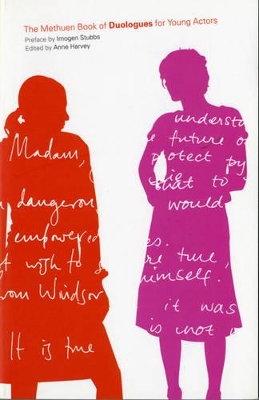 The Methuen Book of Duologues for Young Actors
Preface by Imogen Stubbs
Edited by Anne Harvey
understa
e future o
Madam,
protect py
that to
dangeron
would
empowered
es.
t wish to s
re true,
himself.
rom Windsor
it was
It is true
is not